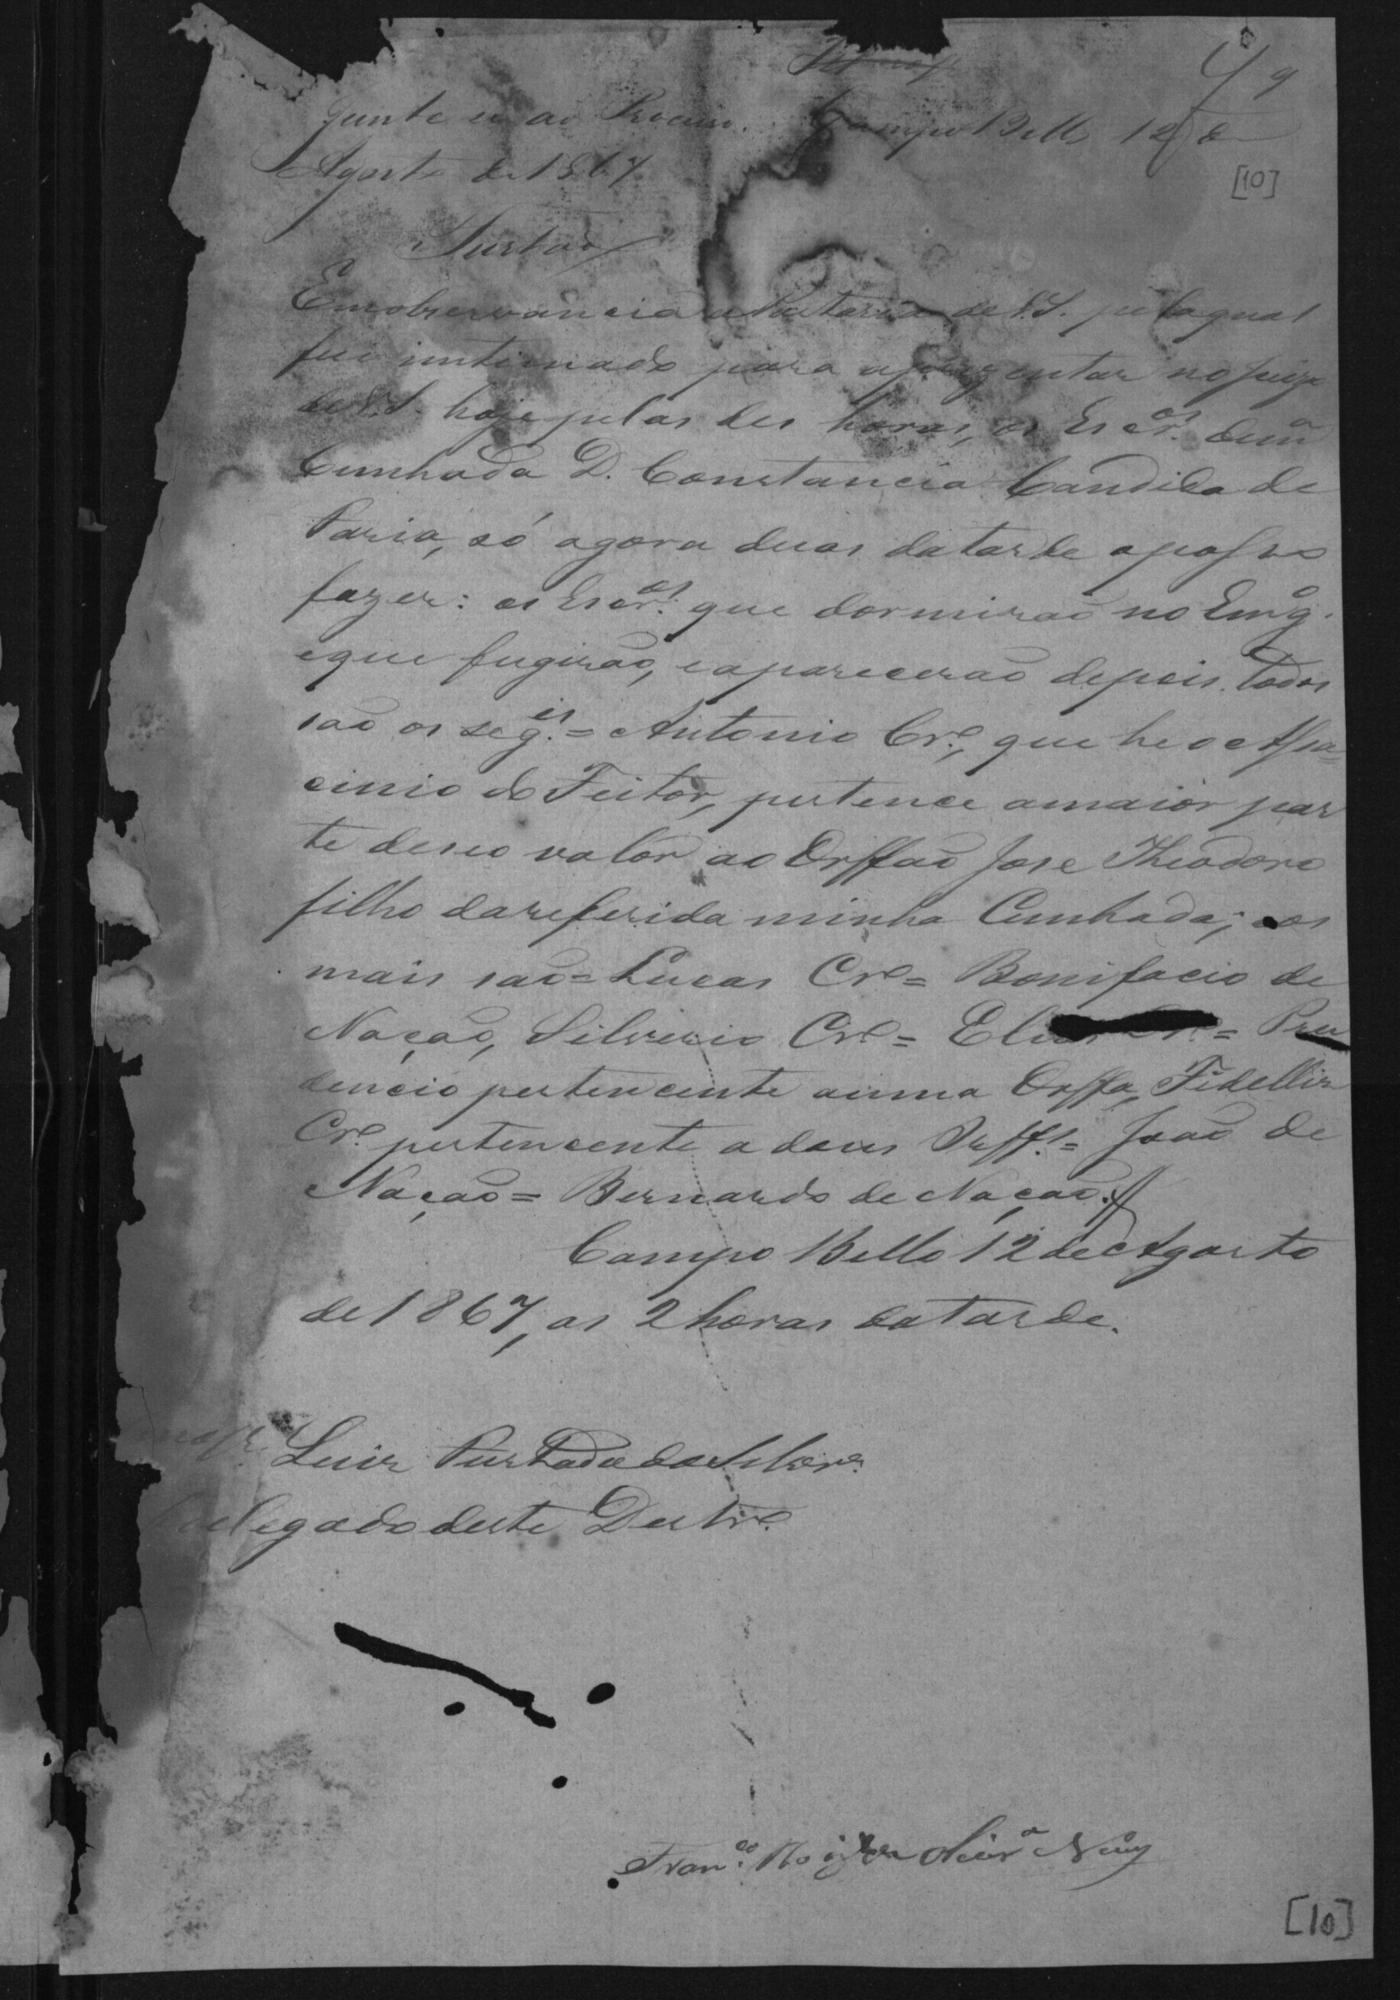 9
Junte se ao Processo. Campo Bello 12 de
Agosto de 1867
[10]
Furtado
Em observancia a Portaria de V.S. pela qual
fui intimado para aprezentar no juizo
de V.S. hoje pelas des horas, os Escr.os de m.a
Cunhada D. Constancia Candida de
Faria, só agora duas da tarde o posso
fazer: os Escr.os que dormirão no Eng.o
e que fugirão, e aparecerão depois todos
são os seg.es = Antonio Cr.o, que he o Assa=
cinio do Feitor, pertence a maior par
te de seo valor ao Orffão Jose Theodoro
filho da referida minha Cunhada; e os
mais são = Lucas Cr.o = Bonifacio de
Nação, Silverio Cr.o = = Pru
dencio pertencente a uma Orffa, Fidellis
Cr.o pertencente a dous Orff.s = João de
Nação = Bernardo de Nação.
Campo Bello 12 de Agosto
de 1867, as 2 horas da tarde.
Luis Furtado
delegado deste Destr.o
Fran.co
[10]